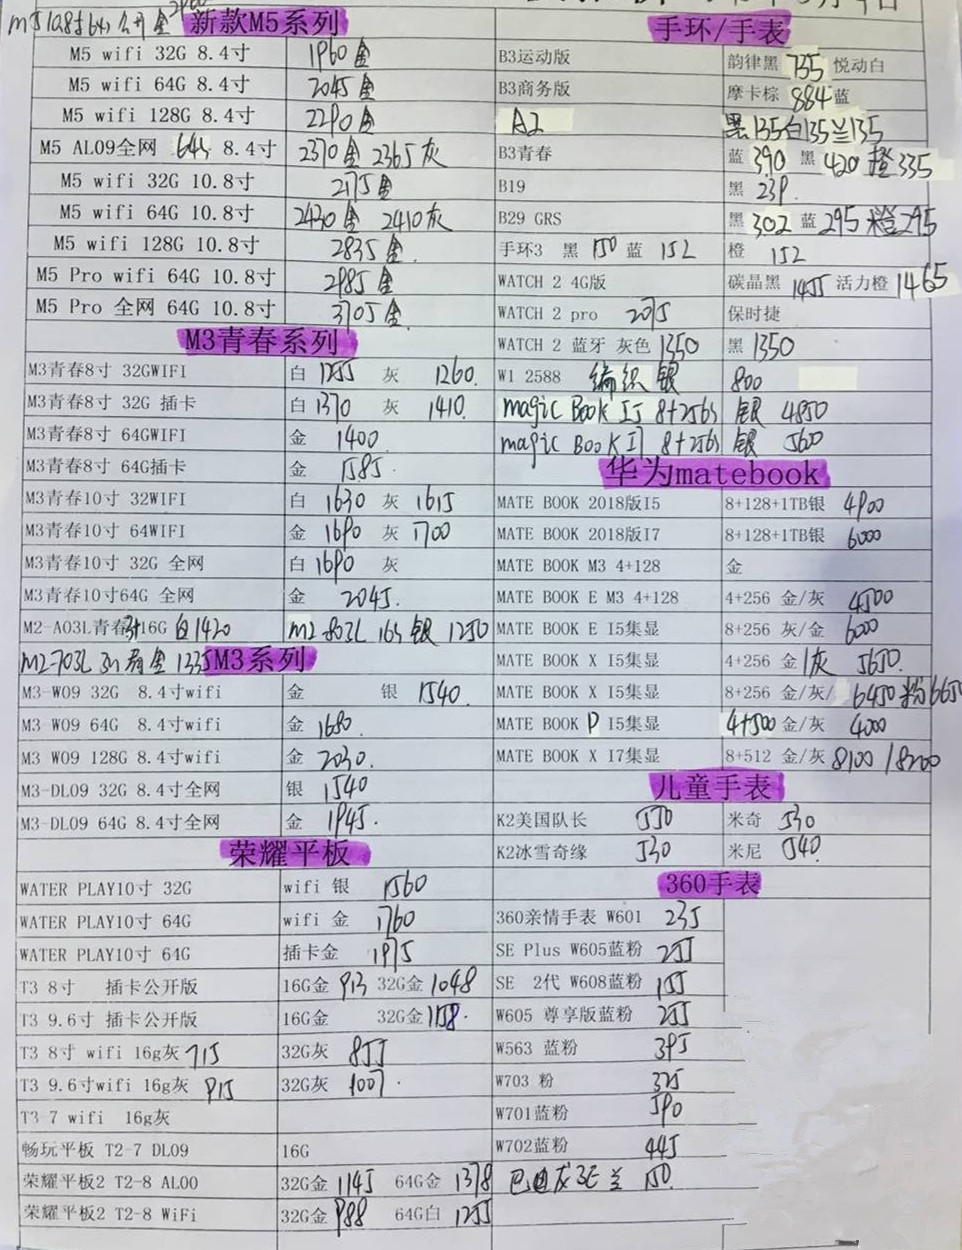 新款M5系列
M5 wifi 32G 8.4寸 1960 金
M5 wifi 64G 8.4寸 2045 金
M5 wifi 128G 8.4寸 2290 金
M5 AL09全网 64G 8.4寸 2370 金 2365 灰
M5 wifi 32G 10.8寸 2175 金
M5 wifi 64G 10.8寸 2420 金 2410 灰
M5 wifi 128G 10.8寸 2835 金
M5 Pro wifi 64G 10.8寸 2985 金
M5 Pro 全网 64G 10.8寸 3705 金
M3青春系列
M3青春8寸 32GWIFI 白 1255 灰 1260
M3青春8寸 32G 插卡 白 1370 灰 1410
M3青春8寸 64GWIFI 金 1400
M3青春8寸 64G插卡 金 1585
M3青春10寸 32WIFI 白 1630 灰 1615
M3青春10寸 64WIFI 金 1690 灰 1700
M3青春10寸 32G 全网 白 1690 灰
M3青春10寸64G 全网 金 2045
M2-A03L青春 16G 白 1420 M2-803L 16G 银 1250
M2-703L 金 1235
M3系列
M3-W09 32G 8.4寸wifi 金 银 1540
M3-W09 64G 8.4寸wifi 金 1680
M3 W09 128G 8.4寸wifi 金 2030
M3-DL09 32G 8.4寸全网 银 1540
M3-DL09 64G 8.4寸全网 金 1945
荣耀平板
WATER PLAY10寸 32G wifi 银 1560
WATER PLAY10寸 64G wifi 金 1760
WATER PLAY10寸 64G 插卡金 1975
T3 8寸 插卡公开版 16G金 913 32G金 1048
T3 9.6寸 插卡公开版 16G金 32G金 1158
T3 8寸 wifi 16g灰 715 32G灰 855
T3 9.6寸wifi 16g灰 915 32G灰 1007
T3 7 wifi 16g灰
畅玩平板 T2-7 DL09 16G
荣耀平板2 T2-8 AL00 32G金 1145 64G金 1378
荣耀平板2 T2-8 WiFi 32G金 988 64G白 1255
手环/手表
B3运动版 韵律黑 735 悦动白
B3商务版 摩卡棕 884 蓝
A2 黑 135 白 135 兰 135
B3青春 蓝 390 黑 420 橙 335
B19 黑 239
B29 GRS 黑 302 蓝 295 橙 295
手环3 黑 150 蓝 152 橙 152
WATCH 2 4G版 碳晶黑 1455 活力橙 1465
WATCH 2 pro 2075 保时捷
WATCH 2 蓝牙 灰色 1350 黑 1350
W1 2588 编织 银 800
magic Book I5 8+256G 银 4850
magic Book I7 8+256G 银 5600
华为matebook
MATE BOOK 2018版I5 8+128+1TB银 4900
MATE BOOK 2018版I7 8+128+1TB银 6000
MATE BOOK M3 4+128 金
MATE BOOK E M3 4+128 4+256 金/灰 4500
MATE BOOK E I5集显 8+256 灰/金 6000
MATE BOOK X I5集显 4+256 金/灰 5650
MATE BOOK X I5集显 8+256 金/灰/ 6450 粉 6650
MATE BOOK P I5集显 4+500 金/灰 4000
MATE BOOK X I7集显 8+512 金/灰 8100 /8200
儿童手表
K2美国队长 550 米奇 530
K2冰雪奇缘 530 米尼 540
360手表
360亲情手表 W601 235
SE Plus W605蓝粉 255
SE 2代 W608蓝粉 155
W605 尊享版蓝粉 255
W563 蓝粉 395
W703 粉 325
W701蓝粉 590
W702蓝粉 445
巴迪龙 3E 兰 150